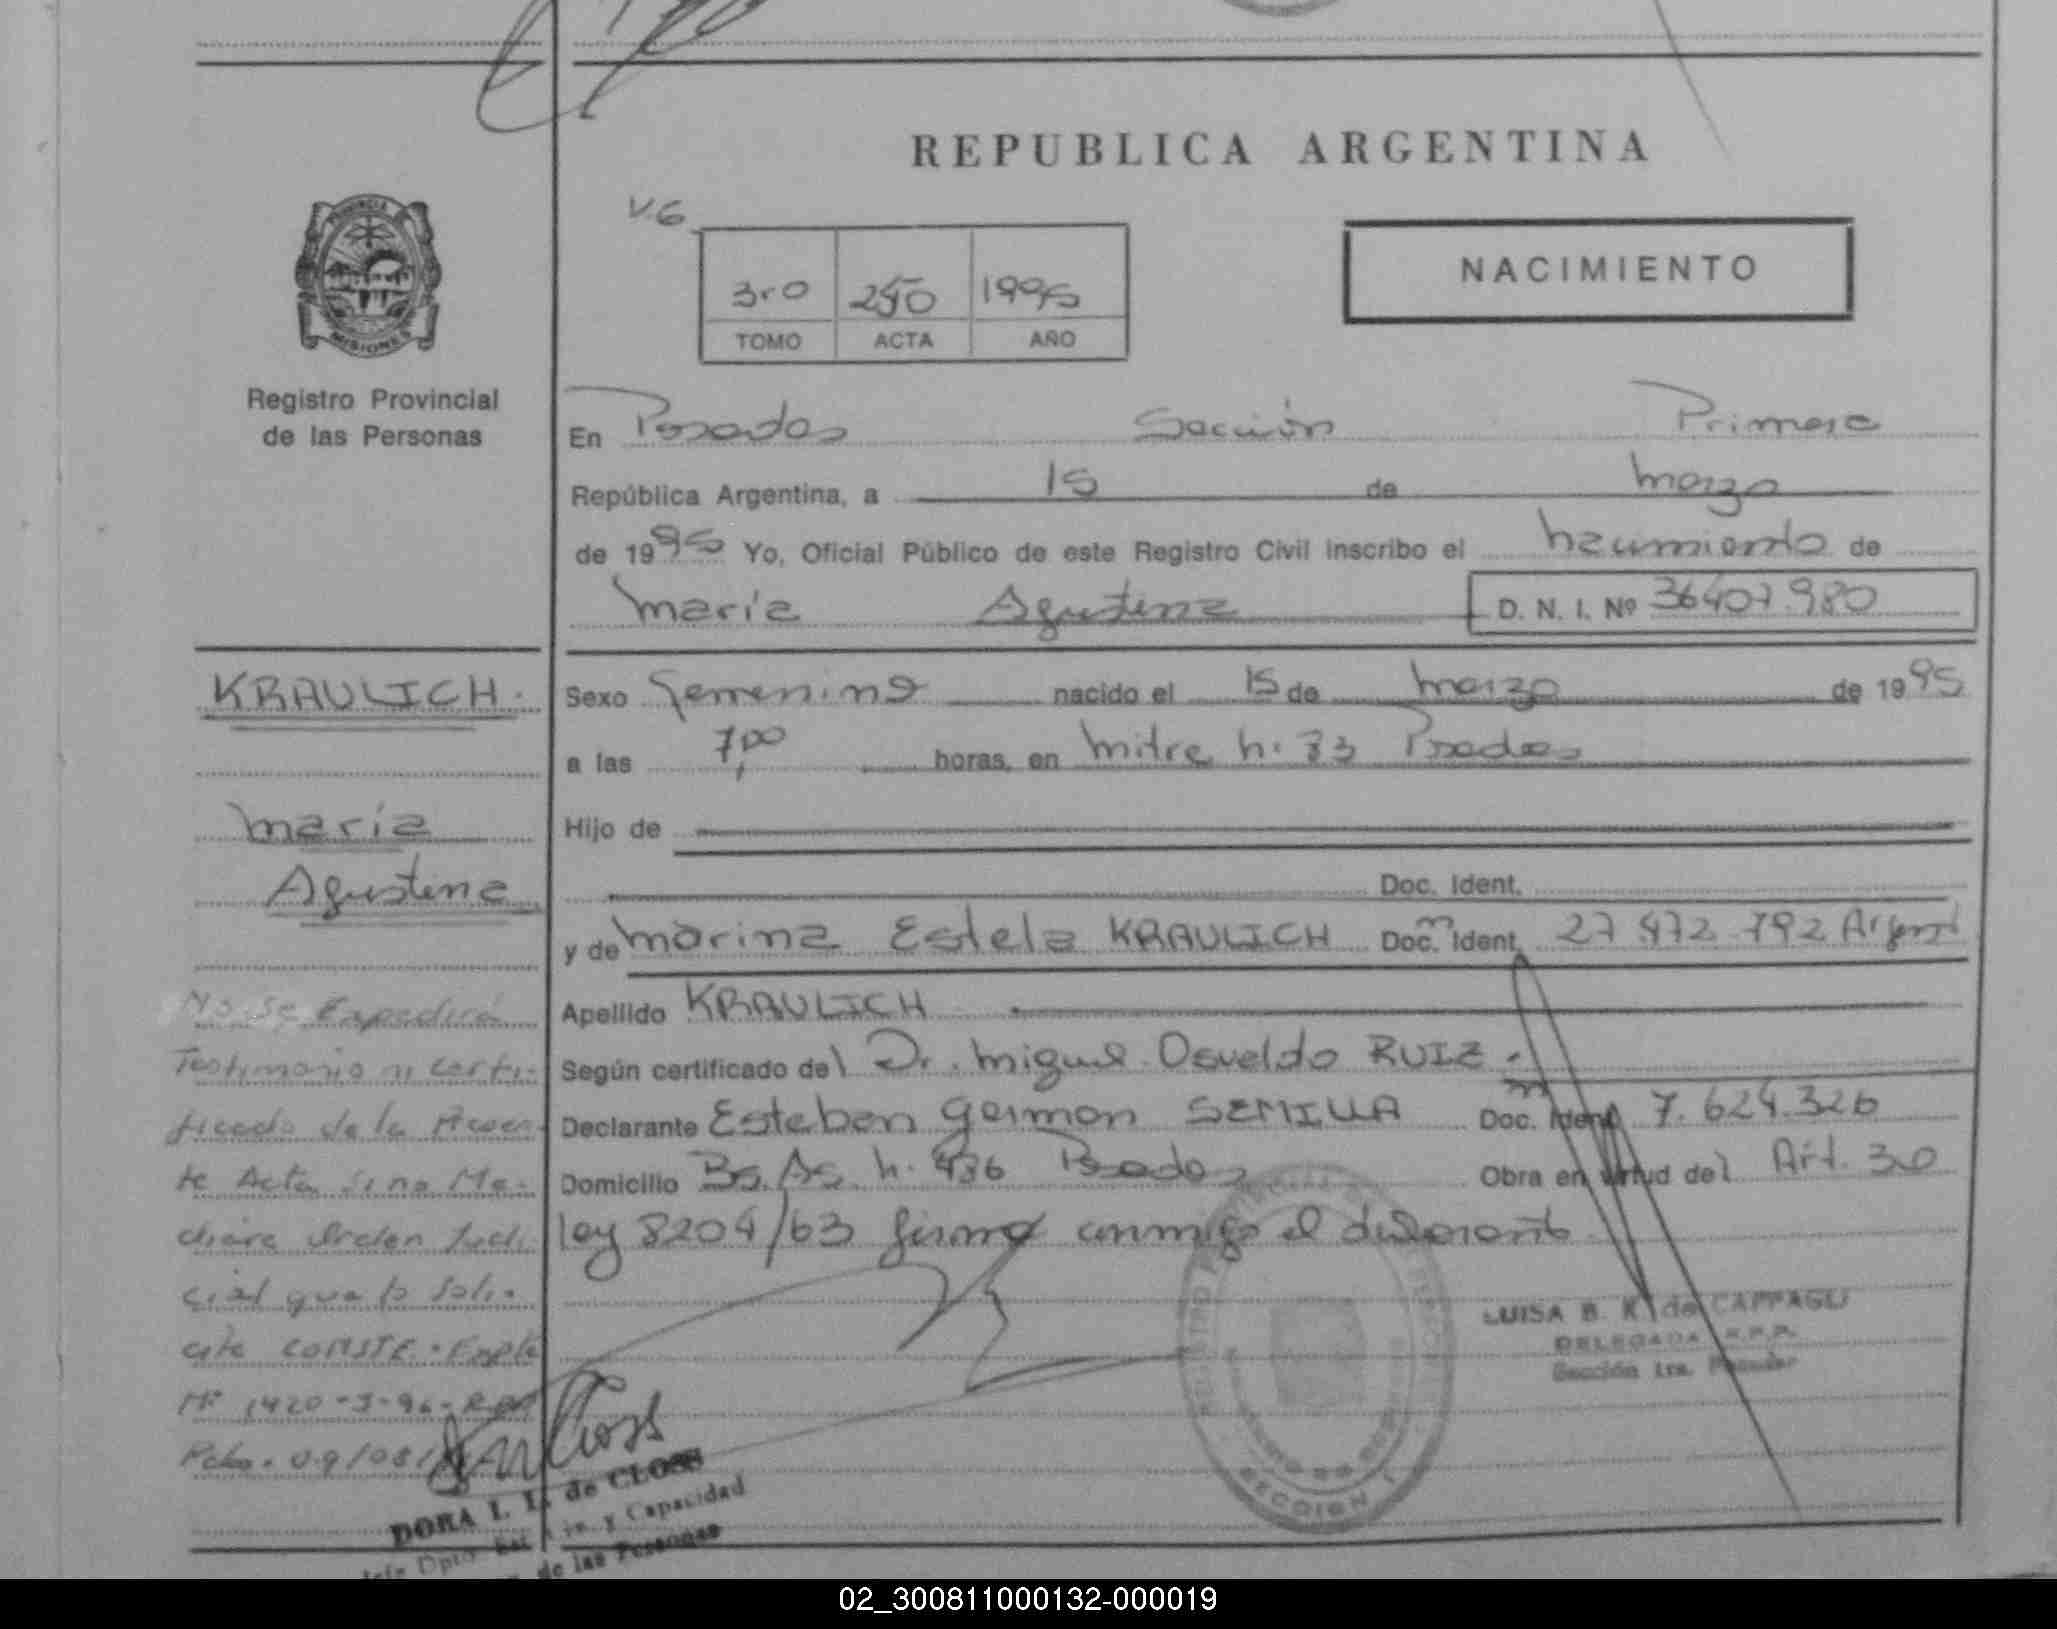 REPUBLICA ARGENTINA
V.6
3ro 250 1995
TOMO ACTA AÑO
NACIMIENTO
PROVINCIA
MISIONES
Registro Provincial
de las Personas
En Posadas Sección Primera
República Argentina, a 15 de marzo
de 1995 Yo, Oficial Público de este Registro Civil inscribo el nacimiento de
María Agustina D. N. I. Nº 36407.980
KRAULICH.
María
Agustina
Sexo femenino nacido el 15 de marzo de 1995
a las 7,00 horas, en Mitre n. 33 Posadas
Hijo de
Doc. Ident.
y de Marina Estela KRAULICH Doc. Ident. 27 472 792 Argent
Apellido KRAULICH
Según certificado del Dr. Miguel Osvaldo RUIZ.
Declarante Esteban German SEMILLA Doc. Ident. 7.624.326
Domicilio Bs. As. n. 436 Posadas Obra en virtud del Art. 30
ley 8204/63 firma conmigo el declarante
No se Expedirá
Testimonio ni certi-
ficado de la Presen-
te Acta si no Me-
diare Orden Judi-
cial que lo soli-
cite CONSTE. Expte
Nº 1420-J-96-RPP
Pdas. 09/08/
LUISA B. K. de CAPPAGLI
DELEGADA R.P.P.
Sección 1ra. Posadas
SECCION 1
DORA I. L. de CLOSS
Jefe Dpto. Est. Civ. y Capacidad
de las Personas
02_300811000132-000019